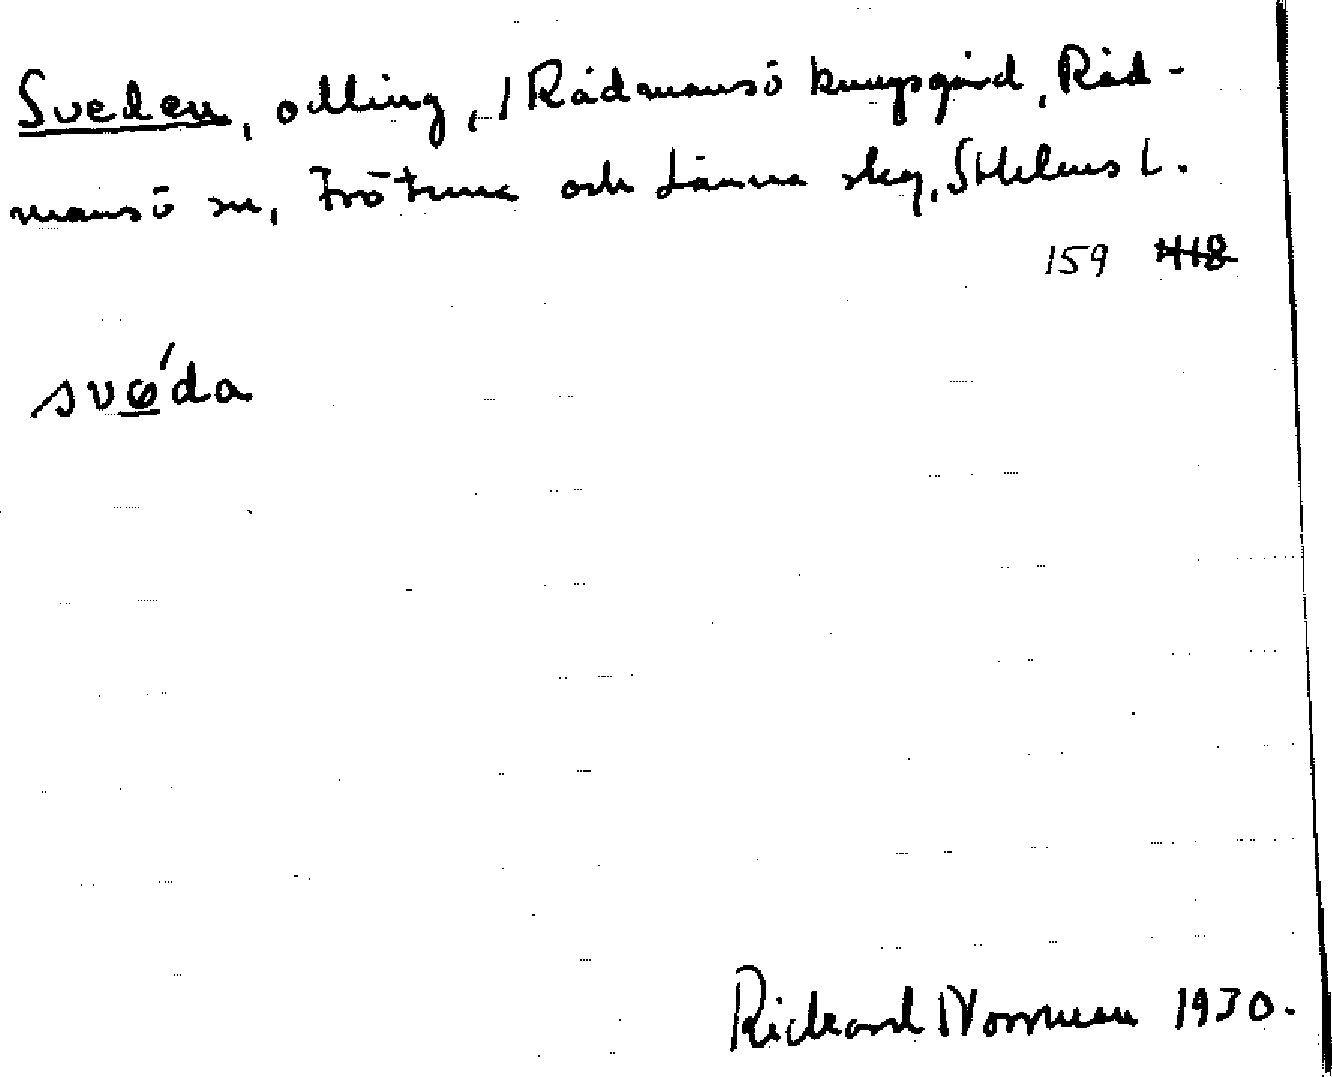 Sveden, odling, / Rådmansö kungsgård, Råd-
mansö sn, Frötuna och Länna skg, Sthlms l.
159 118
svǫ́da
Rickard Norrman 1930.